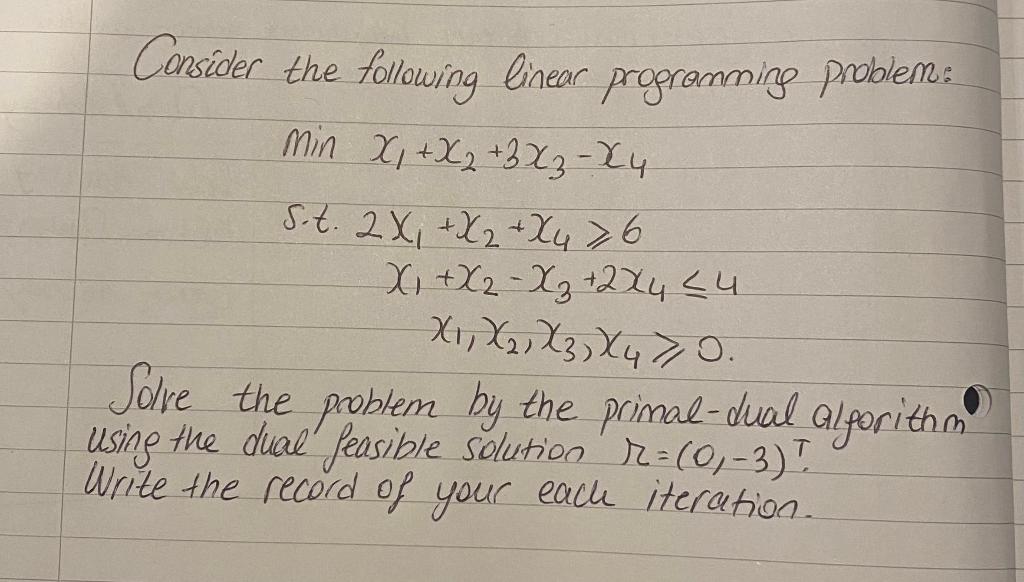 Consider the following linear programming problem:
min x₁ + x₂ + 3x₃ - x₄
s.t. 2x₁ + x₂ + x₄ ⩾ 6
x₁ + x₂ - x₃ + 2x₄ ≤ 4
x₁, x₂, x₃, x₄ ⩾ 0.
Solve the problem by the primal-dual algorithm
using the dual feasible solution π = (0, -3)ᵀ.
Write the record of your each iteration.